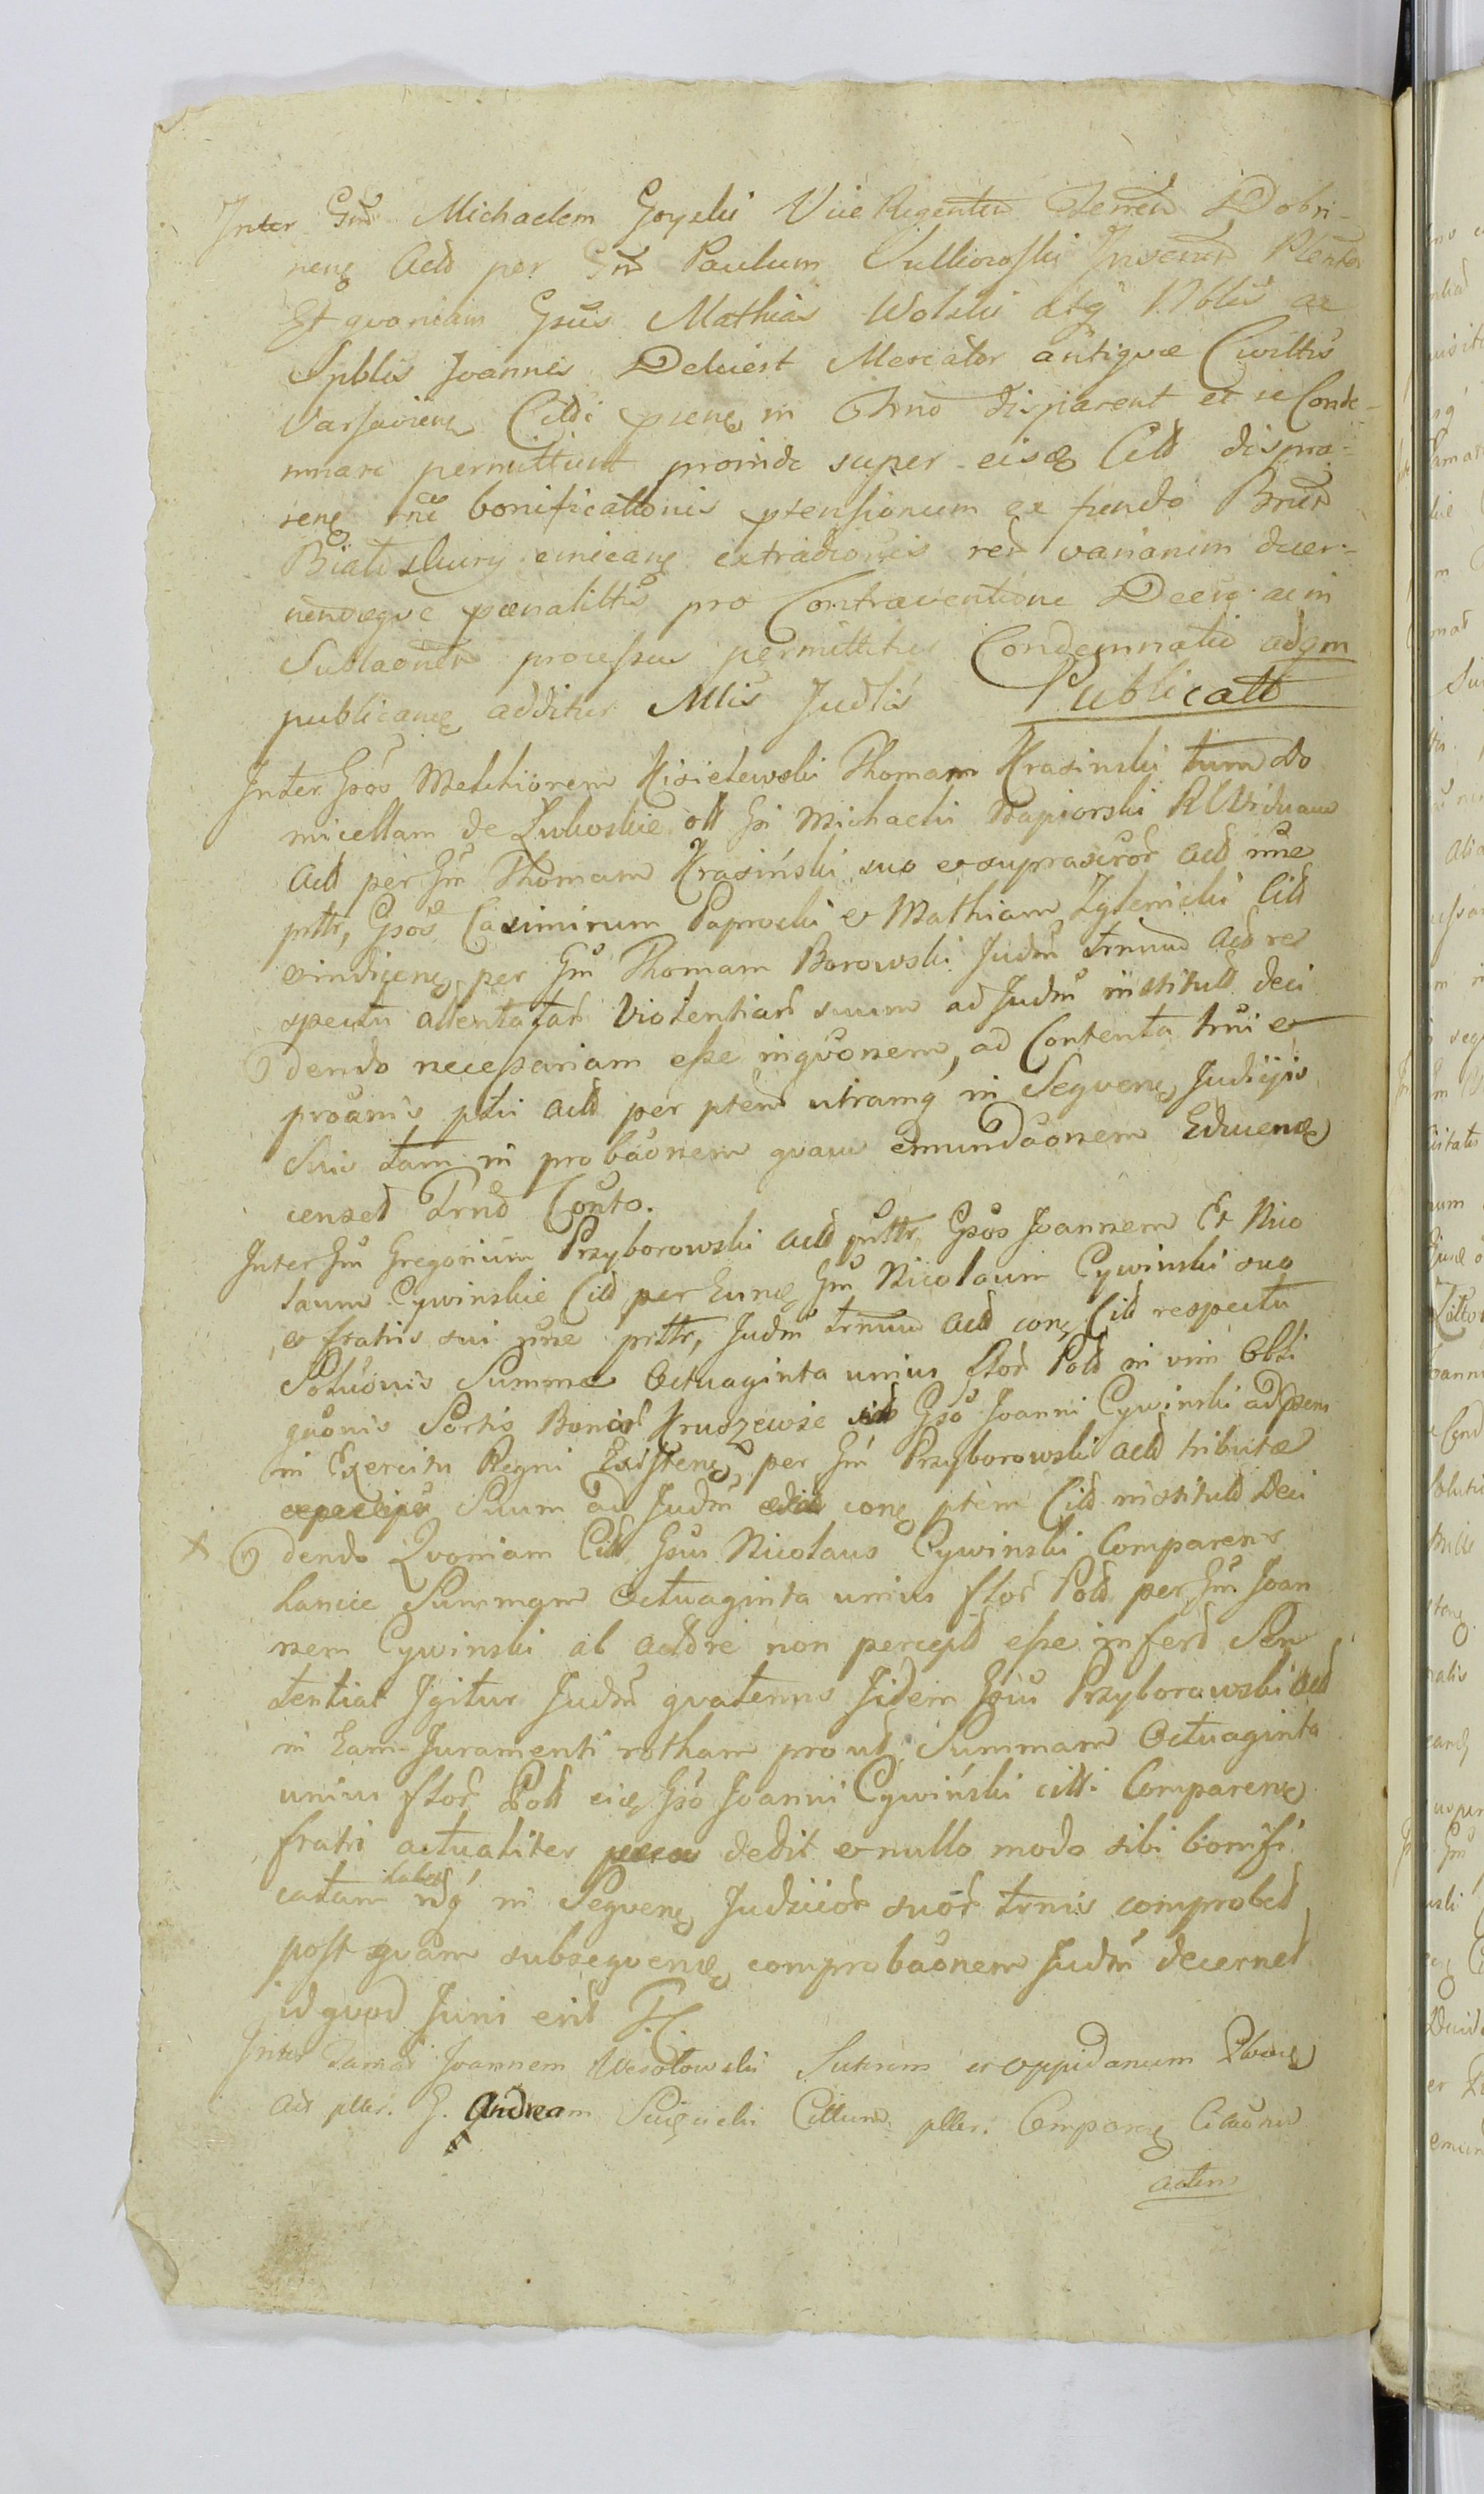 Inter Gnd Michaelem Goyski Vice Regentem Terren Dobri-
nenę Actt per Gnd Paulum Sulkowski Juvenem Plenter
Et qvoniam Gsus Mathias Wolski atq Nblis ac
Spblis Joannes Dekiert Mercator antiqvæ Civittis
Varsavienę Citti psenę in Trno disparent et se Conde-
mnari permittunt proinde super eisdę Citt dispra-
senę rne bonificationis ptensionum ex fundo Bnrd
Białe skury emicanę extradicionis red varianim decer-
nendæqve pænalittis pro Contraventione Decrę ac in
Sublaonem processus permittitur Condemnatio adqm
publicanę additur Mlis Judlis Publicatt
Inter Gsos Melchiorem Kisielewski Thomam Krasinski tum do
micellam de Zukoskie ott Gsi Michaelis Papiorski Rl Viduam
Actt per Gm Thomam Krasiński suo et suprascror actt nne
prttr, Gsos Casimirum Paprocki et Mathiam Zglenicki Citt
evindicenę per Gm Thomam Borowski Judm trnum Actt res
spectu attentatar Violentiar suum ad Judm institutt deci
dendo necessariam esse inqvonem, ad Contenta trni et
proanis ptū actt per ptem utramq in Seqvenę Judicijs
Suis tam in probaonem qvam emundaonem Educendę
censet Trno Conto.
Inter Gm Gregorium Przyborowski actt prttr Gsos Joannem Et Nico
laum Cywinskie Citt per Eundę Gm Nicolaum Cywinski suo
et fratris sui nne prttr, Judm trnum actt conę Citt respectu
Soluonis Summæ Octuaginta unius flor Pold in vim Obli
gaonis Sortis Bonor Kruszewie Gso Joanni Cywinski adpsens
in Exercitu Regni Existenę per Gm Przyborowski actt tributæ
Suum ad Judm conę ptem Citt institutt Deci
X dendo Qvoniam Citt Gsus Nicolaus Cywinski Comparens
hancce Summam Octuaginta unius flor Pold per Gm Joan
nem Cywinski ab actore non percept esse infert Sen
tentiat Igitur Judm qvatenus Jidem Gsus Przyborowski actt
in Eam Juramenti rotham prout Summam Octuaginta
unius flor Pold eidę Gso Joanni Cywiński citti Comparenę
fratri actualiter dedit et nullo modo sibi bonifi
catam habet idq in Seqvenę Judiciór suór trnis comprobet
post qvam subseqvenę comprobaonem Judm decernet
id qvod Juris erit
Inter Famat Joannem Wesołowski Sutorem et oppidanum
Act pller. G. Andream Swięcicki Cittum pller. Comparenę Citaonis
actem